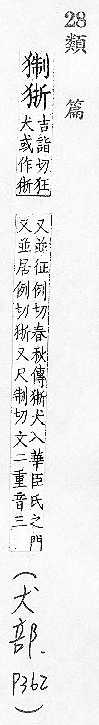 28類篇
猘狾吉詣切狂
犬或作狾
又並征例切春秋傳狾犬入華臣氏之門
又並居例切狾又尺制切文二重音三
(犬部. P362)